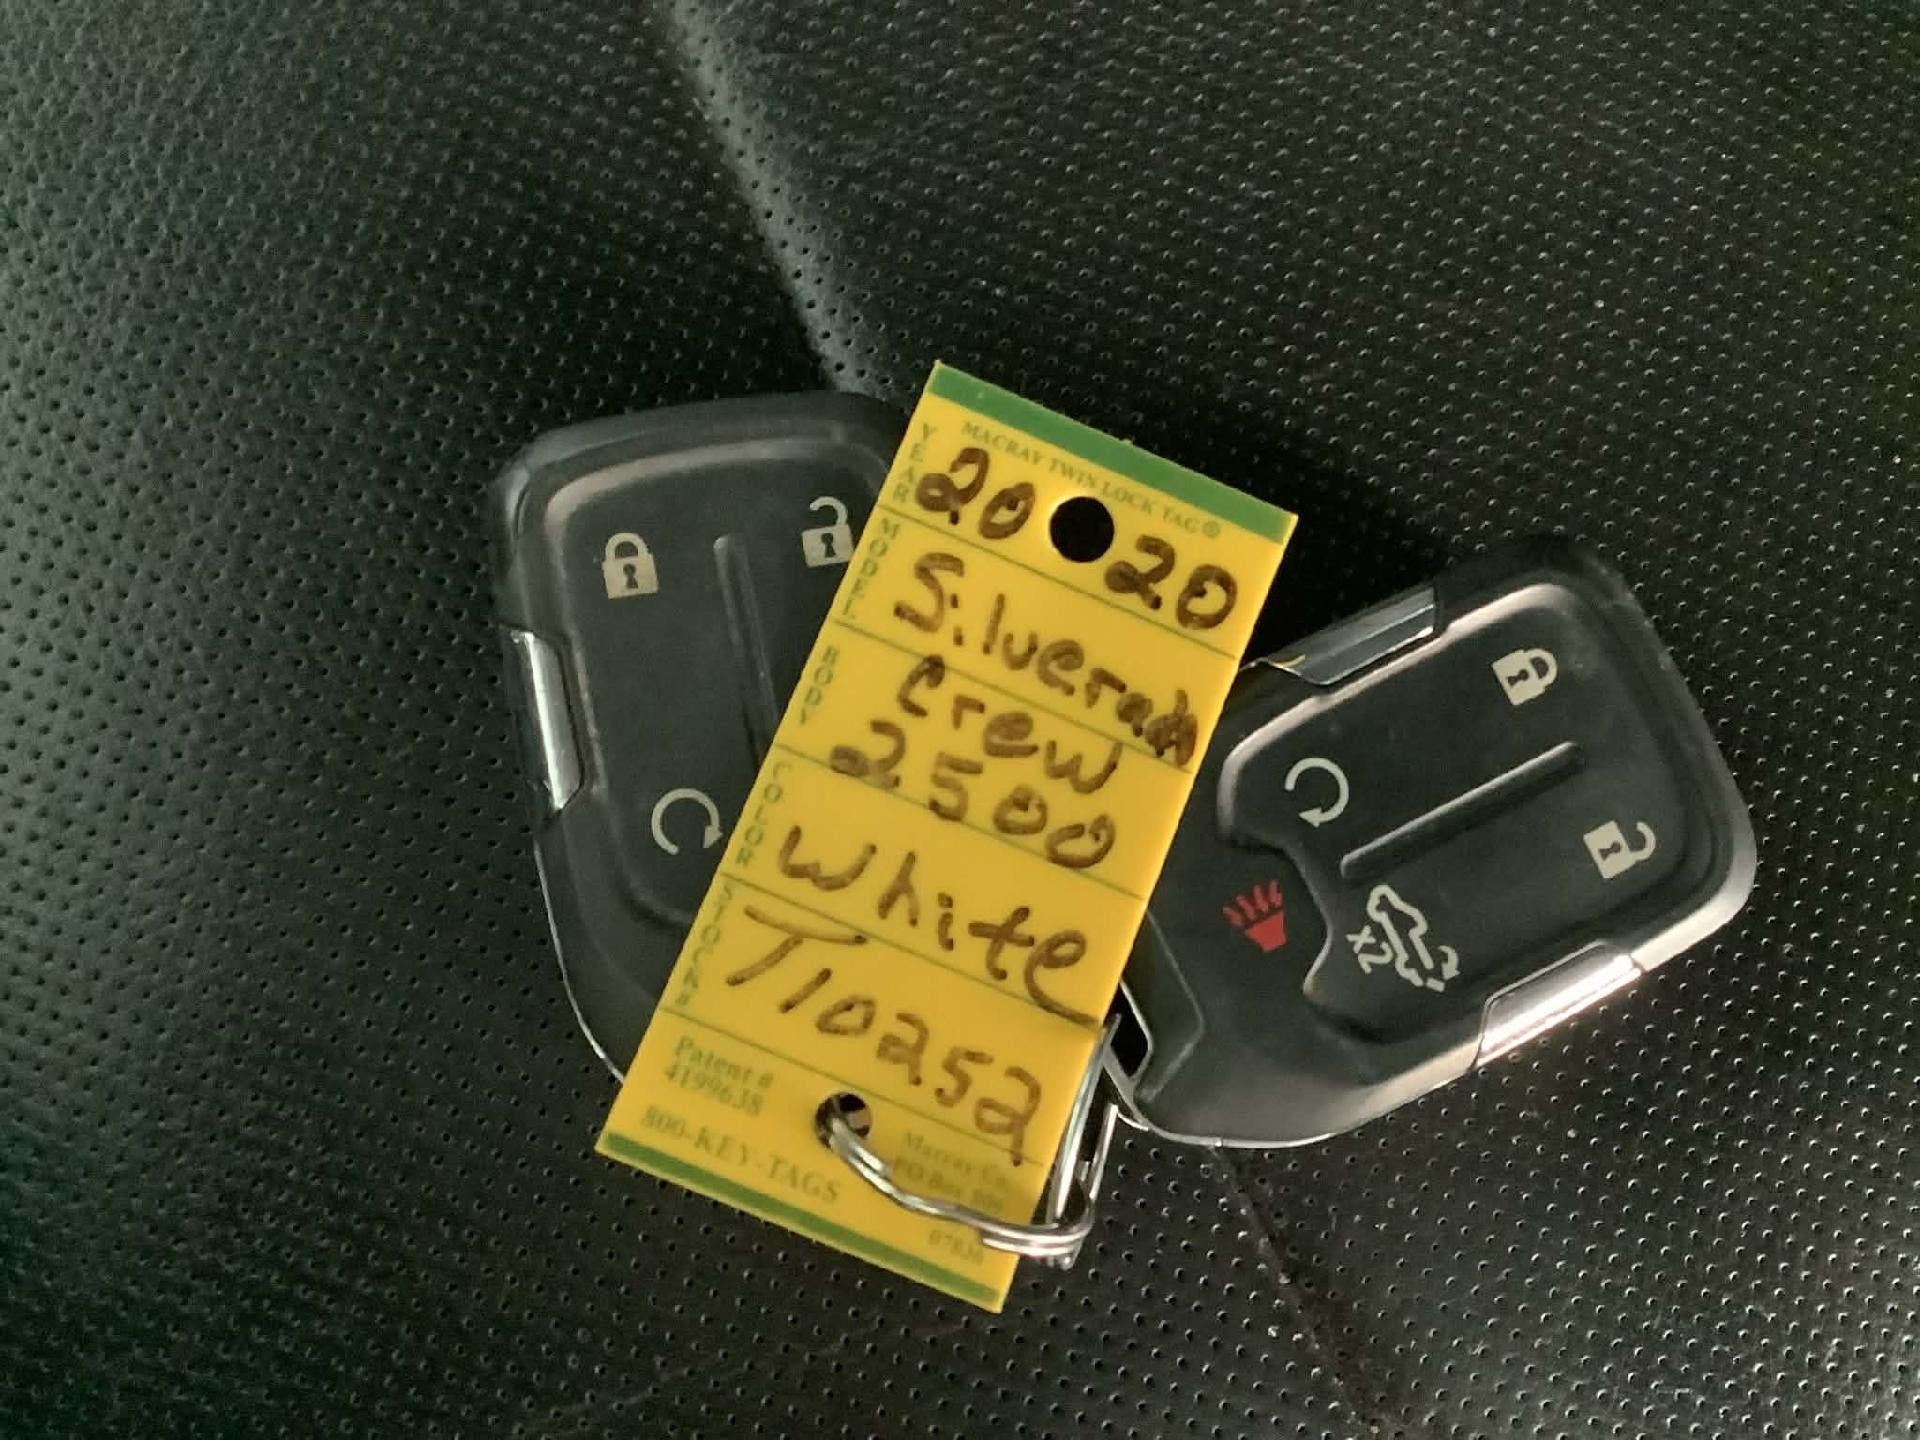 MACRAY TWIN LOCK TAG®
YEAR 20 20
MODEL Silverado
BODY Crew
2500
COLOR White
STOCK# T10252
Patent #
4199638
800-KEY-TAGS
Macray Co.
PO Box 809
07830
X2